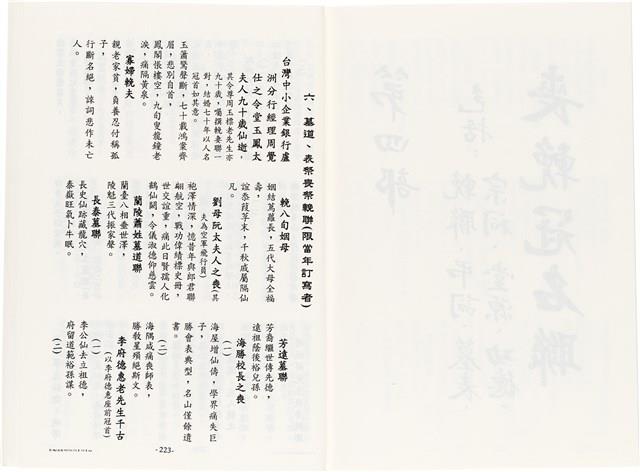 六、墓道、喪祭喪祭輓聯(限當年訂寫者)
台灣中小企業銀行盧
洲分行經理周覺
仕之令堂玉鳳太
夫人九十歲仙逝，
其令尊周玉標老先生亦
九十歲，囑撰輓妻聯一
對，結婚七十年以人名
冠首如其意。
玉蕭驚聲斷，七十載鴻案齊
眉，悲別自首，
鳳閣悵樓空，九旬叟龍鐘老
淚，痛隔黃泉。
寡婦輓夫
親老家貧，負養忍付稱孤
子，
行斷名絕，誄詞悲作未亡
人。
輓八旬姻母
姻結蔦蘿長，五代大母全福
壽，
誼忝葭莩末，千秋戚屬隔仙
凡。
劉母阮太夫人之喪(其
夫為空軍飛行員)
袍澤情深，憶昔年與郎君聯
翩航空，戰功偉績標史冊，
世交誼重，痛此日賢孺人化
鶴仙鬭，令儀淑德仰慈雲。
蘭陵蕭姓墓道聯
蘭臺八相垂世澤，
陵魁三代振家聲。
長泰墓聯
長史仙跡藏龍穴，
泰嶽旺氣卜牛眠。
芳遠墓聯
芳裔繼世傳先德，
遠祖蔭後裕兒孫。
海勝校長之喪
(一)
海屋增仙儔，學界痛失巨
子，
勝會表典型，名山僅餘遺
書。
(二)
海隅咸痛喪師表，
勝教星殞絕斯文。
李府德惠老先生千古
(以李府德惠座前冠首)
(一)
李公仙去立祖德，
府留道範裕孫謀。
(二)
-223-
第四部
喪輓冠名聯